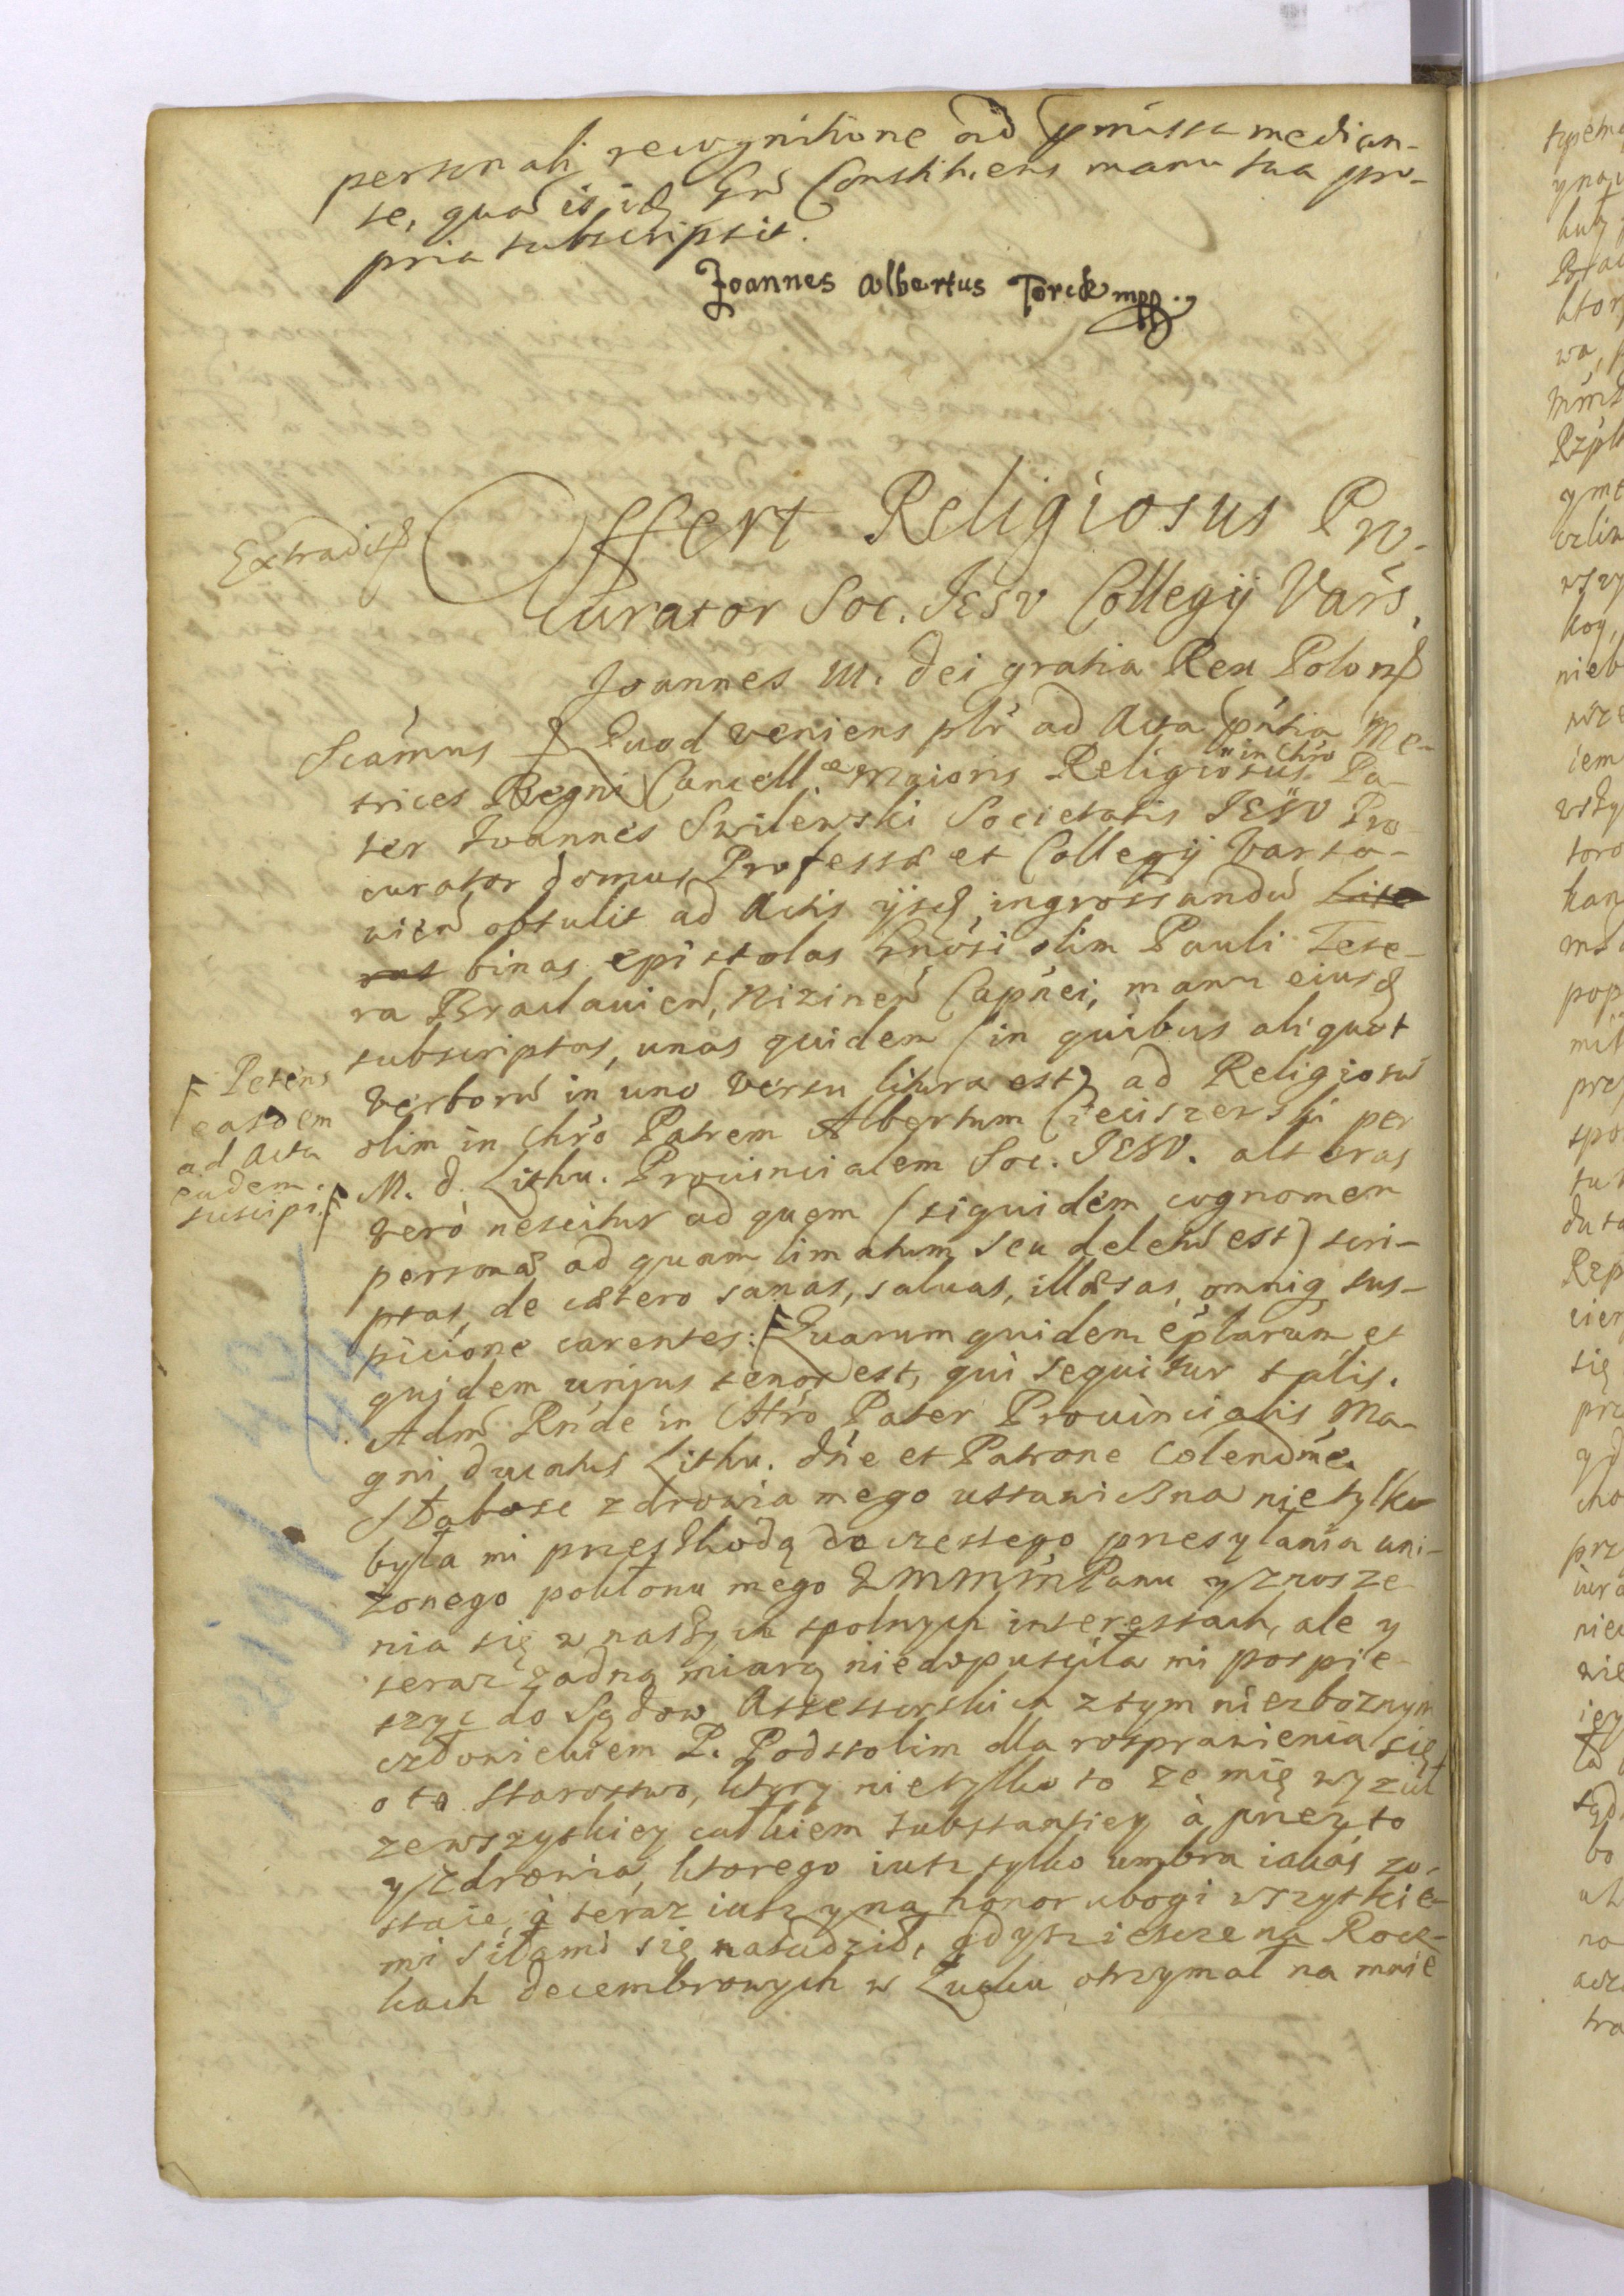 personali recognitione ad pmissa median-
te, quã is idẽ Gñs Constituens manu sua pro-
pria subscripsit.
Joannes Albertus Torck mpp.
Extradit
Offert Religiosus Pro-
curator Soc. JESV Collegij Vars.
Joannes III. Dei gratia Rex Polon
Sčamus Quod veniens plr ad Acta pńtia Me-
trices Regni Cancellæ Maioris Religiosus in Chro Pa-
ter Joannes Swilewski Societatis JESV Pro
curator Domus Professæ et Collegij Varsa-
vien obtulit ad Actis ijsd ingrossandũ Lite
ras binas epistolas Gnosi olim Pauli Tete-
ra Braclavien, Nizinen Capnei, manu eiusd
subscriptas, unas quidem (in quibus aliquot
verborũ in uno versu litura est) ad Religiosũ
olim in Chro Patrem Albertum Cieciszewski per
M. D. Lithu. Provincialem Soc. JESV. alteras
vero nescitur ad quem (siquidem cognomen
personæ ad quam limatum seu deletũ est) scri-
ptas, de cætero sanas, salvas, illæsas, omniq sus-
picione carentes: Quarum quidem eplarum et
quidem unius tenor est, qui sequitur talis.
Petens
easdem
ad Acta
eadem
suscipi.
Adm Rnde in Chro Pater Provincialis Ma-
gni Ducatus Lithu. Dne et Patrone Colendme
Słabosc zdrowia mego ustawiczna nietylko
była mi przeszkodą do częstego przesyłania uni-
zonego pokłonu mego WMMMPanu y znosze
nia się w naszych spolnych interessach, ale y
teraz zadną miarą niedopuscila mi pospie-
szyc do Sądow Assessorskich z tym niezboznym
człowiekiem P. Podstolim dla rosprawienia się
o to Starostwo, ktory nietylko to ze mię wyzuł
ze wszystkiey całkiem substantiey à przez to
y zdrowia, ktorego iusz tylko umbra iakas zo-
staie, à teraz iusz y na honor ubogi wszytkie-
mi siłami się nasadził, gdysz ieszcze na Rocz-
kach Decembrowych w Łucku otrzymał na mnie